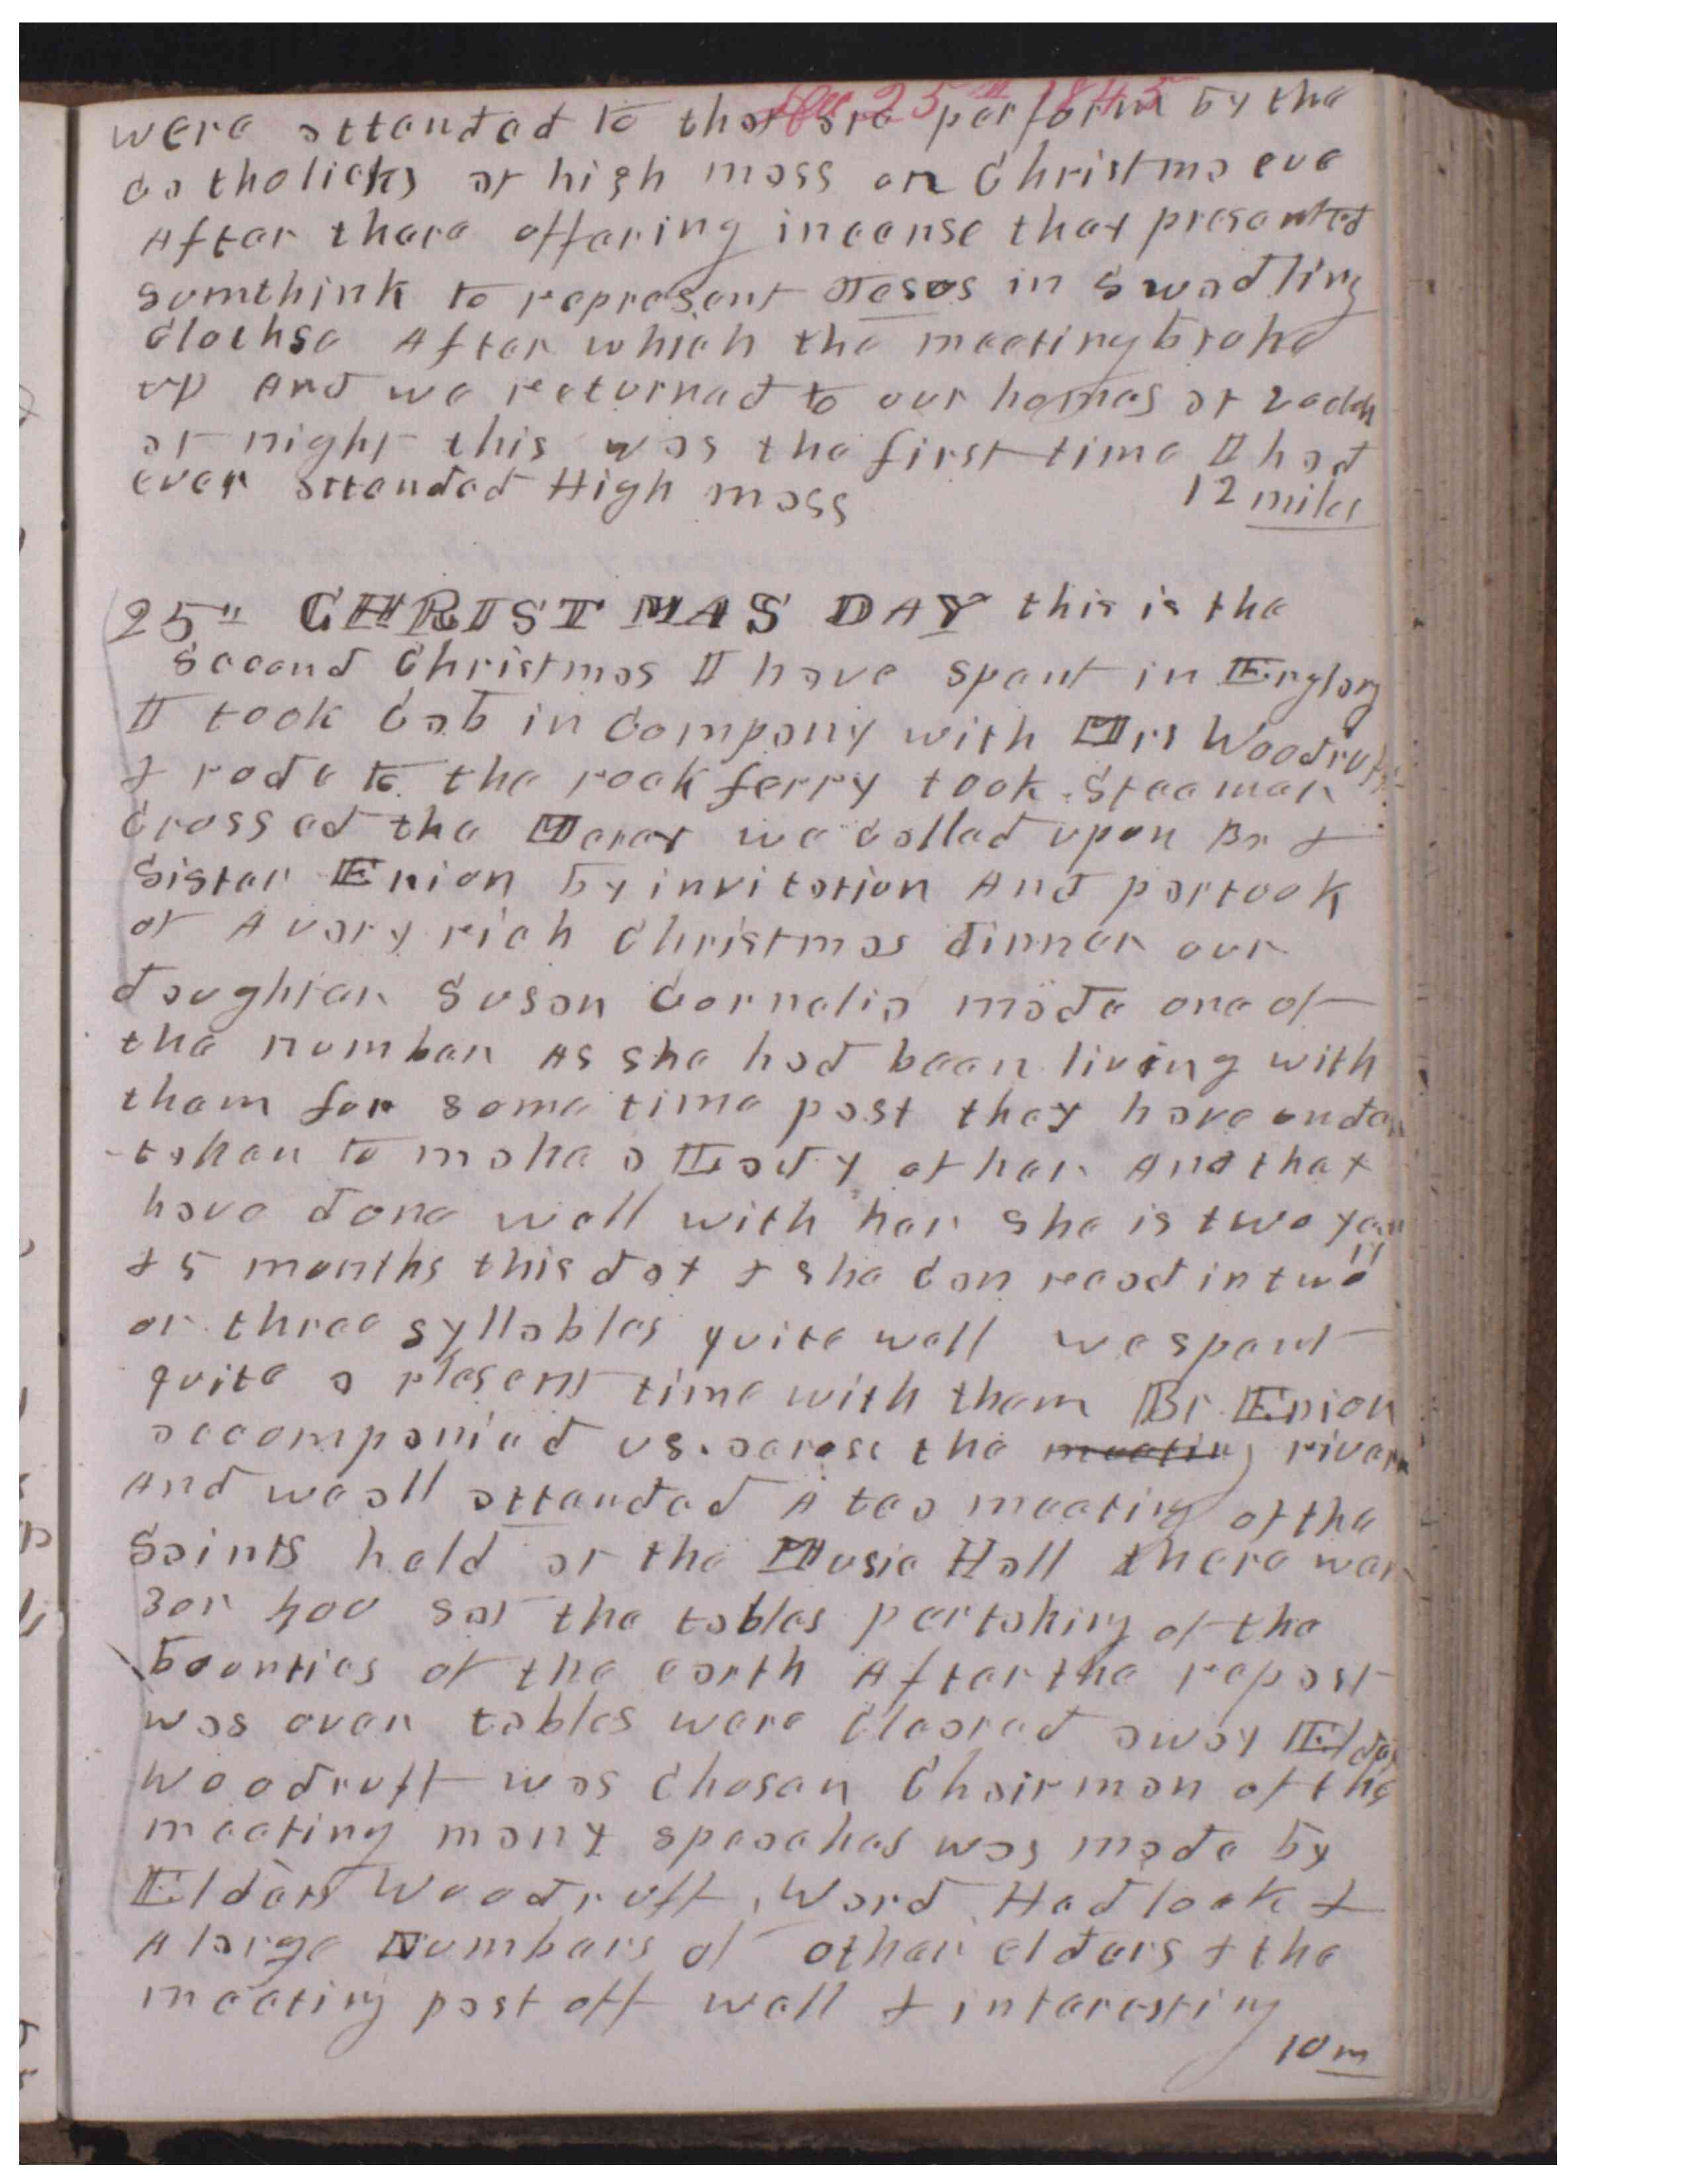 Dec 25th 1845
were attended to that are perform by the
catholicks at high mass on Christma eve
After there offering incense they presented
sumthink to represent Jesus in Swadling
Clothse After which the meeting broke
up And we returned to our homes at 2 oclok
at night this was the first time I had
ever attended High mass 12 miles
25th CHRISTMAS DAY this is the
Second Christmas I have spent in England
I took Cab in Company with Mrs Woodruff
& rode to the rock ferry took Steemer
Crossed the Mercy we Called upon Br &
Sister Enion by invitation And partook
of A vary rich Christmas dinner our
daughter Susan Cornelia made one of
the number As she had been living with
them for some time past they have under
-taken to make a Lady of her And they
have done well with her she is two years
& 5 months this day & she Can read in two
or three syllables quite well we spent
quite a plesent time with them Br Enion
accompanied us acrose the meeting river
And we all attended A tea meeting of the
Saints held at the Music Hall there was
3 or 400 sat the tables partaking of the
bounties of the earth After the repast
was over tables were Cleared away Elder
Woodruff was Chosen Chairman of the
meeting many speeches was made by
Elders Woodruff, Ward, Hedlock &
A large Numbers of other elders & the
meeting past off well & interesting
10 m